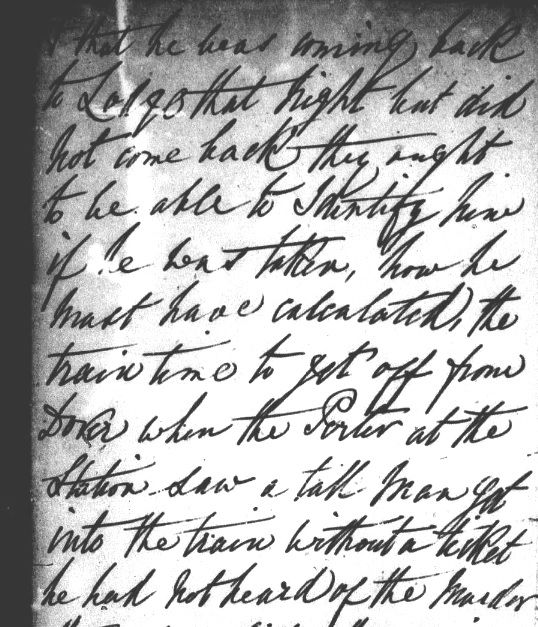 that he was coming back
to Lodge that night but did
not come back they ought
to be able to Identify him
if he was taken, now he
must have calculated, the
train time to get off from
Dover when the Porter at the
Station saw a tall man get
into the train without a ticket
he had not heard of the Murder